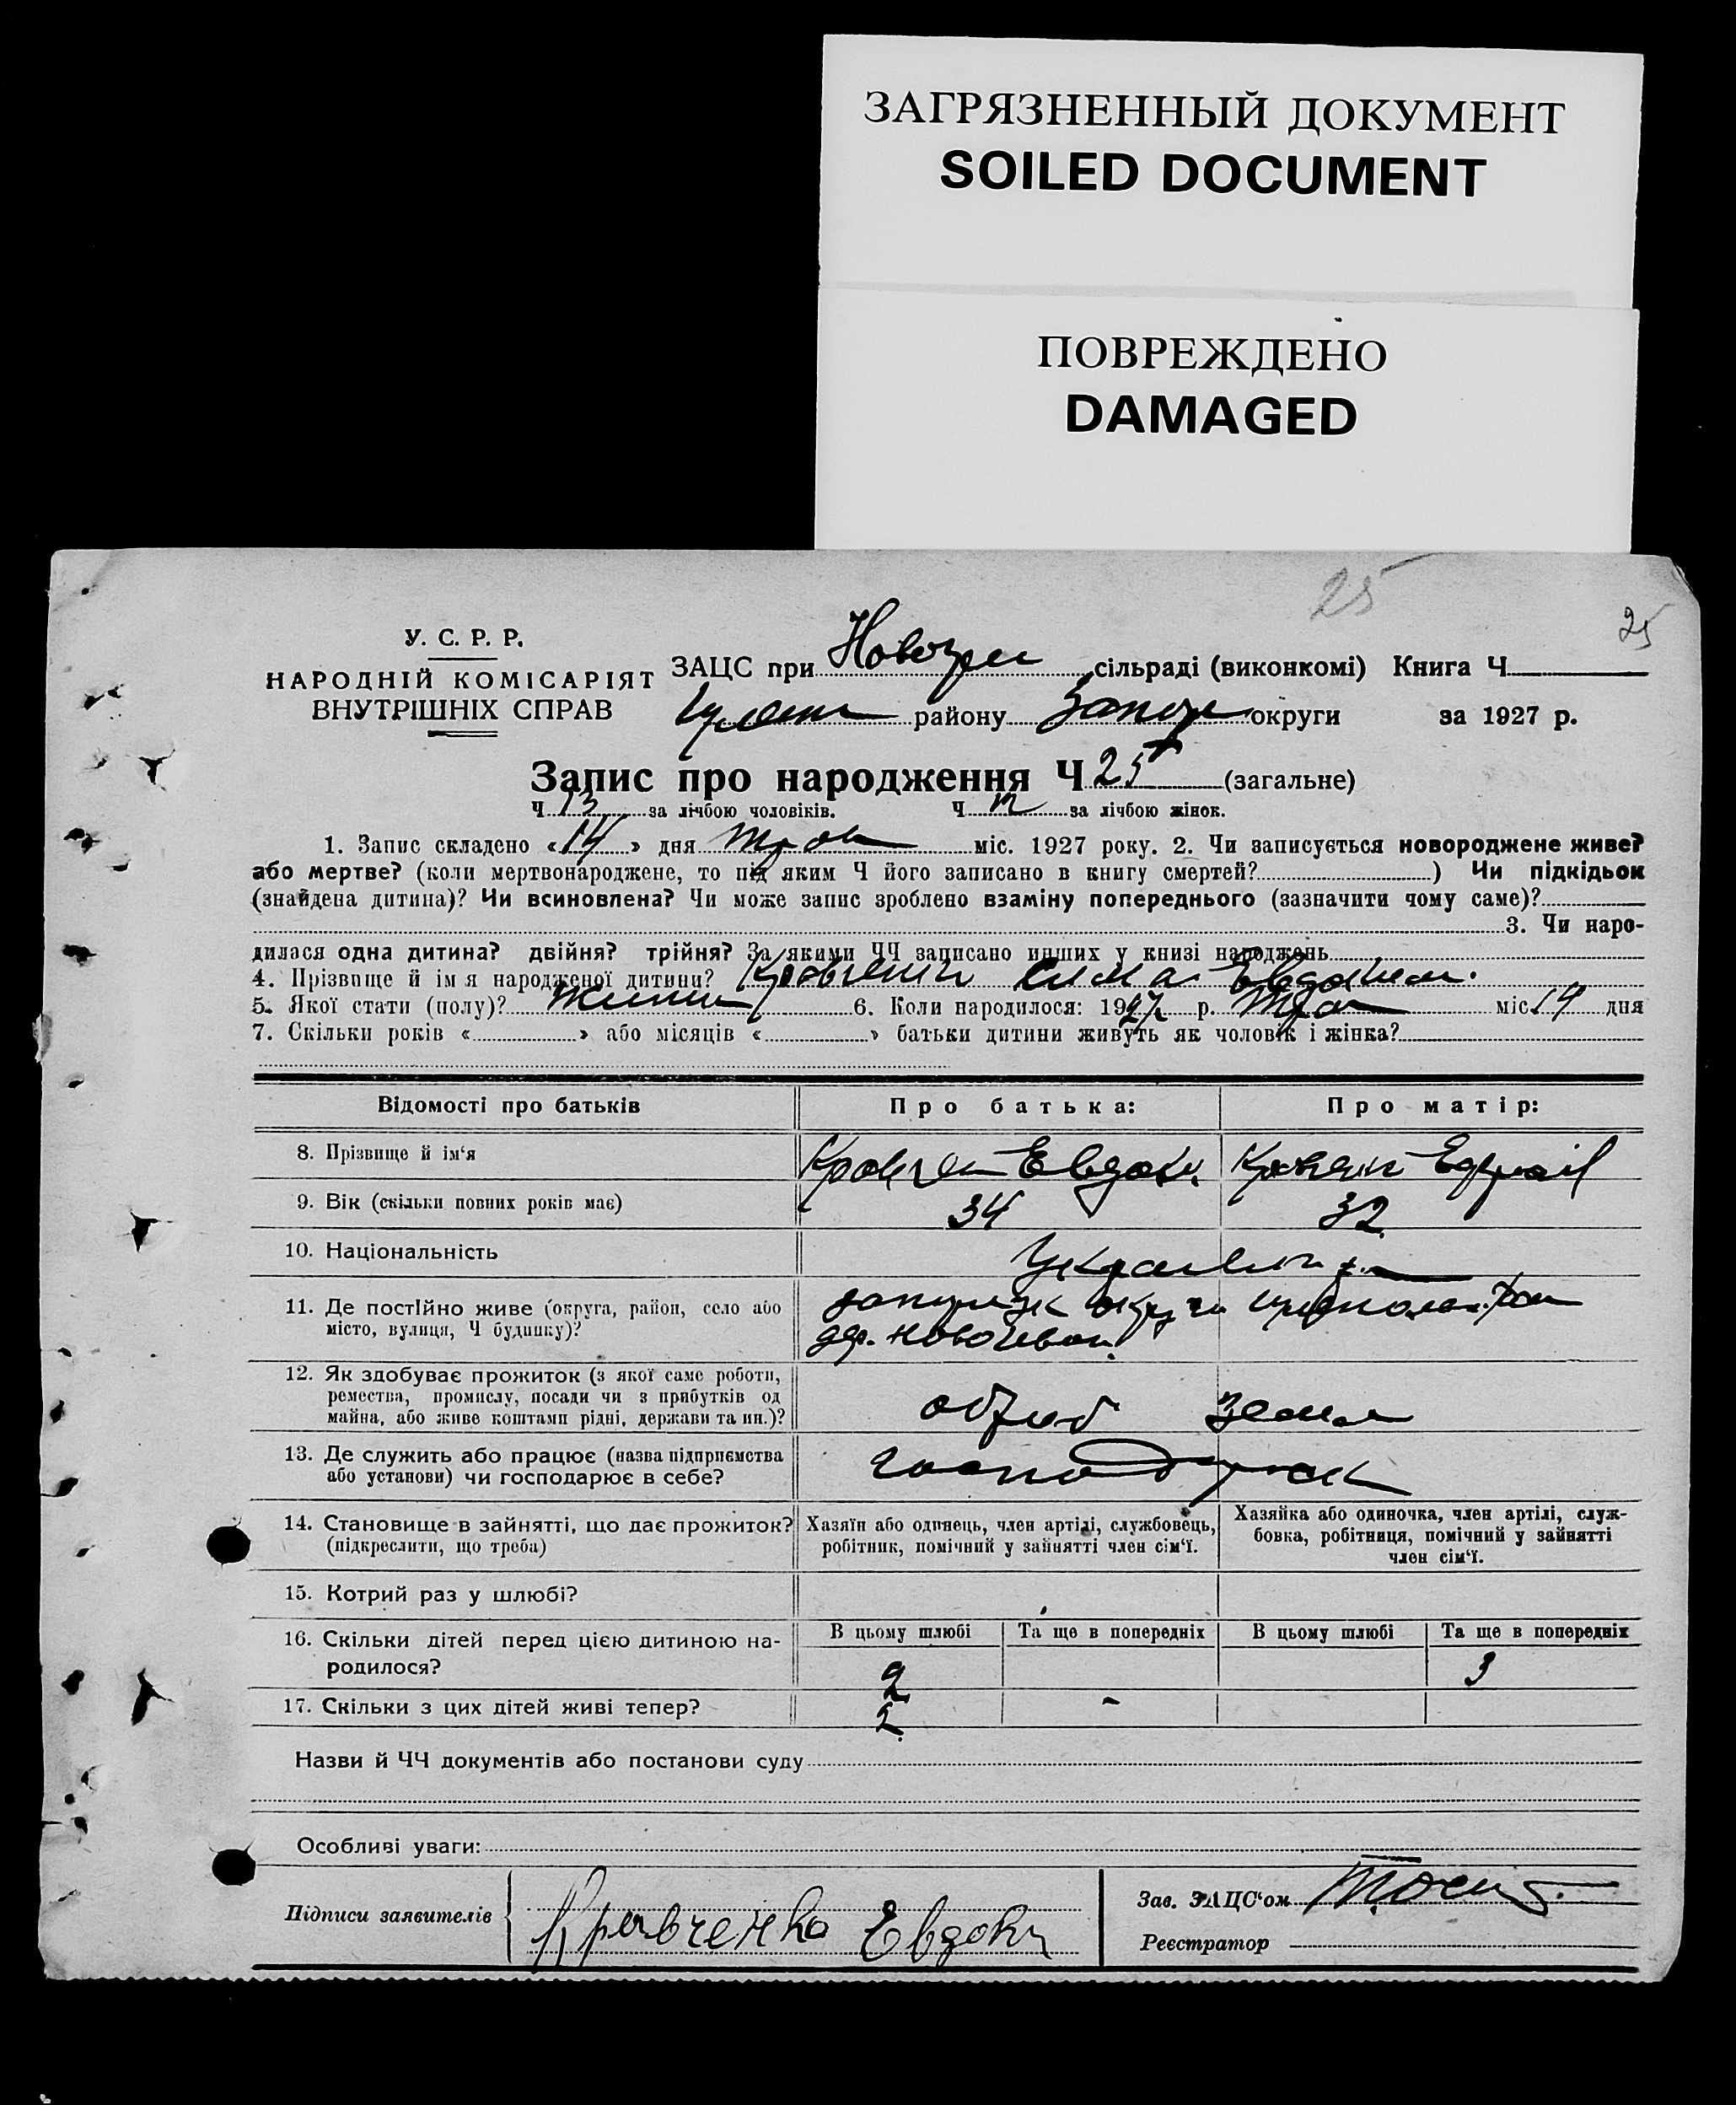 ЗАГРЯЗНЕННЫЙ ДОКУМЕНТ
SOILED DOCUMENT
ПОВРЕЖДЕНО
DAMAGED
25
25
У. С. Р. Р.
НАРОДНІЙ КОМІСАРІЯТ
ВНУТРІШНІХ СПРАВ
ЗАЦС при сільраді (виконкомі) Книга Ч
району округи за 1927 р.
Запис про народження Ч 25 (загальне)
Ч 13 за лічбою чоловіків. Ч 12 за лічбою жінок.
1. Запис складено «14» дня Трав міс. 1927 року. 2. Чи записується новороджене живе?
або мертве? (коли мертвонароджене, то під яким Ч його записано в книгу смертей? ) Чи підкідьок
(знайдена дитина)? Чи всиновлена? Чи може запис зроблено взаміну попереднього (зазначити чому саме)?
3. Чи наро-
дилася одна дитина? двійня? трійня? За якими ЧЧ записано инших у книзі народжень
4. Прізвище й ім я народженої дитини?
5. Якої стати (полу)? 6. Коли народилося: 1927 р. Трав міс. 14 дня
7. Скільки років « » або місяців « » батьки дитини живуть як чоловік і жінка?
Відомості про батьків Про батька: Про матір:
8. Прізвище й ім‘я
9. Вік (скільки повних років має) 34 32
10. Національність
11. Де постійно живе (округа, район, село або
місто, вулиця, Ч будинку)?
12. Як здобуває прожиток (з якої саме роботи,
ремества, промислу, посади чи з прибутків од
майна, або живе коштами рідні, держави та ин.)?
13. Де служить або працює (назва підприємства
або установи) чи господарює в себе?
14. Становище в зайнятті, що дає прожиток?
(підкреслити, що треба)
Хазяїн або одинець, член артілі, службовець,
робітник, помічний у зайнятті член сім‘ї.
Хазяйка або одиночка, член артілі, служ-
бовка, робітниця, помічний у зайнятті
член сім‘ї.
15. Котрий раз у шлюбі?
16. Скільки дітей перед цією дитиною на-
родилося?
В цьому шлюбі Та ще в попередніх В цьому шлюбі Та ще в попередніх
2 3
17. Скільки з цих дітей живі тепер? 2
Назви й ЧЧ документів або постанови суду
Особливі уваги:
Підписи заявителів Кравченко Евдоки
Зав. ЗАЦС‘ом
Реєстратор